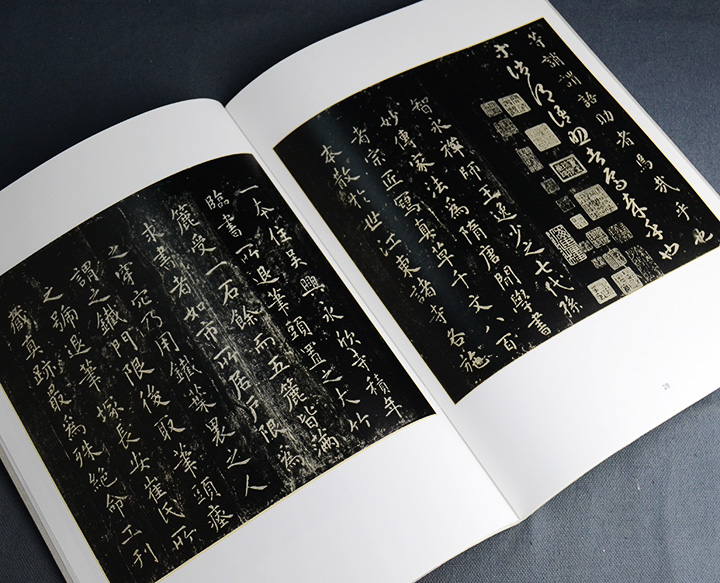 等誚謂語助者焉哉乎也
等誚謂語助者焉哉乎也
智永禪師王逸少之七代孫
妙傳家法爲隋唐間學書
者宗匠寫真草千文八百
本散於世江東諸寺各施
一本住吳興永欣寺積年
臨書所退筆頭置之大竹
簏受一石餘而五簏皆滿
求書者如市所居戶限爲
之穿穴乃用鐵葉裹之人
謂之鐵門限後取筆頭瘞
之號退筆塚長安崔氏所
藏真跡最爲殊絶命工刊
29